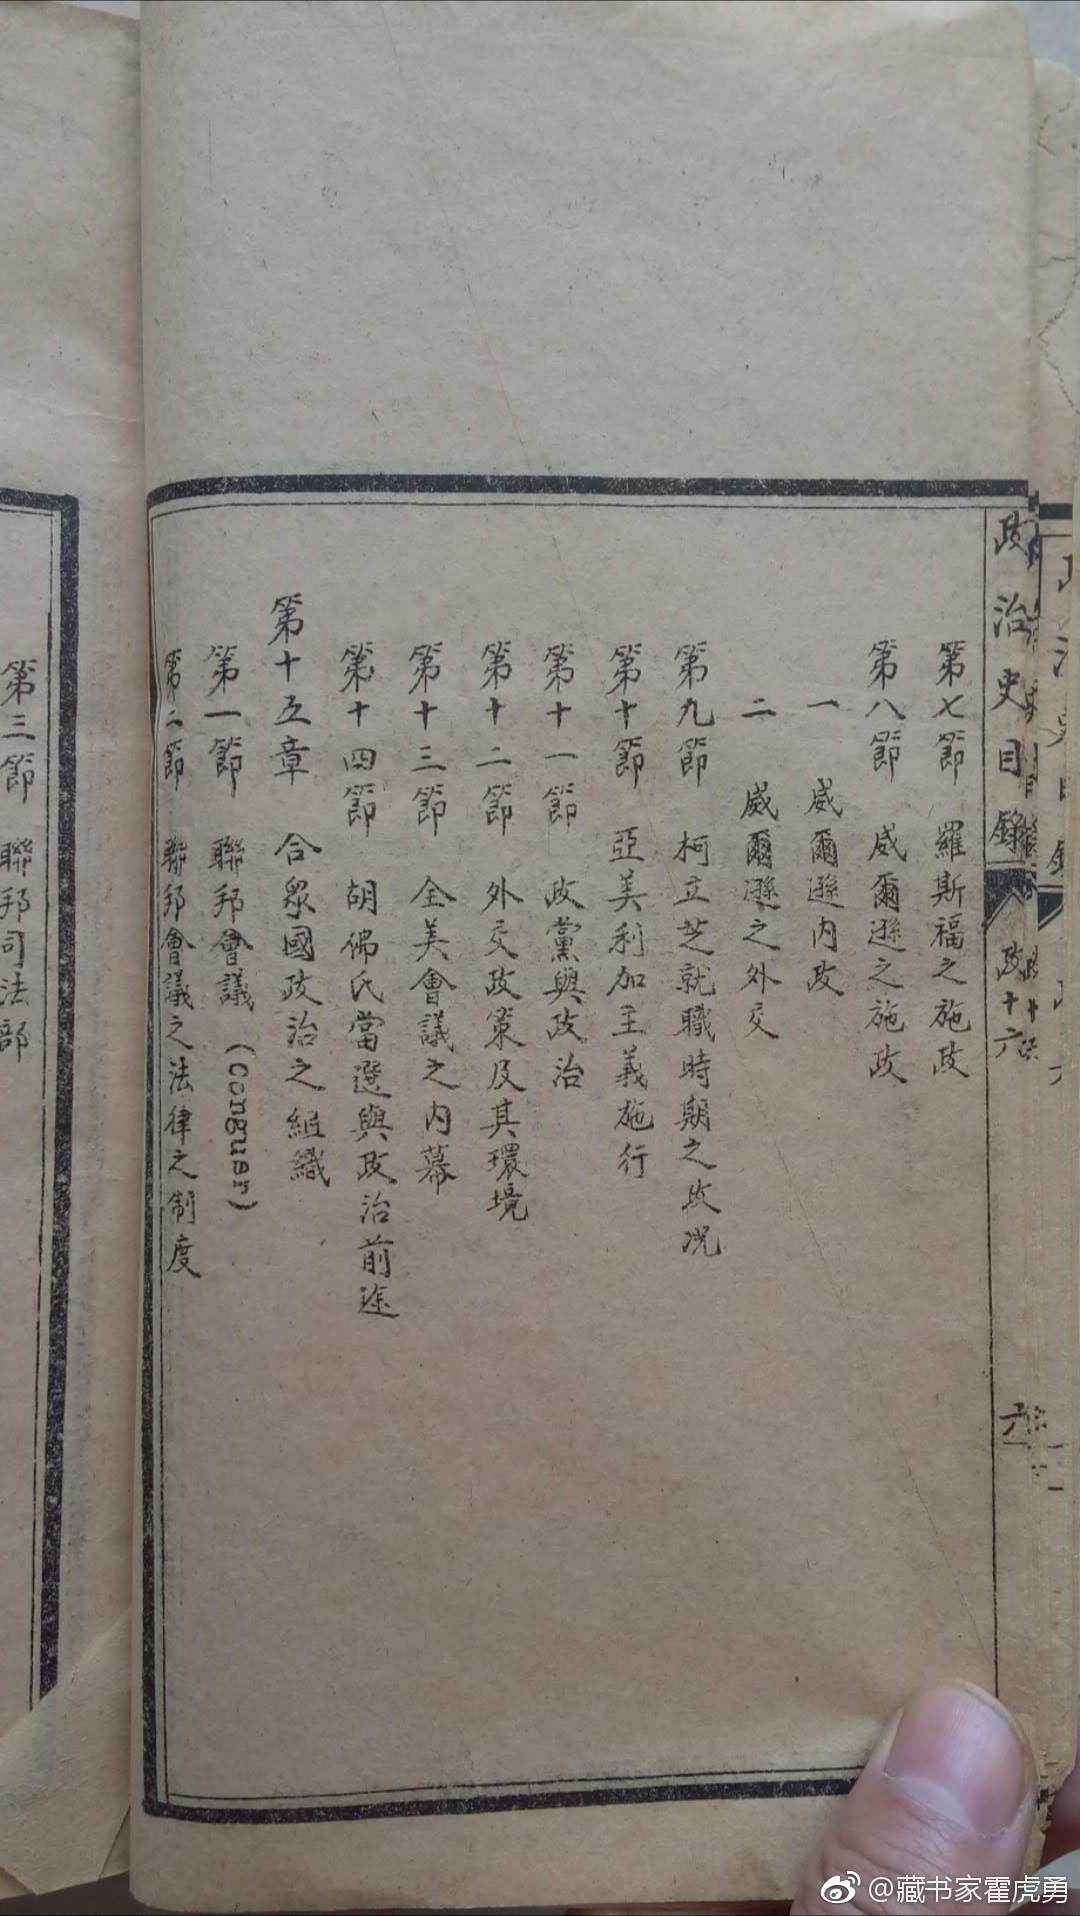 政治史目錄
政十六
六
第七節 羅斯福之施政
第八節 威爾遜之施政
一 威爾遜內政
二 威爾遜之外交
第九節 柯立芝就職時期之政况
第十節 亞美利加主義施行
第十一節 政黨與政治
第十二節 外交政策及其環境
第十三節 全美會議之內幕
第十四節 胡佛氏當選與政治前途
第十五章 合眾國政治之組織
第一節 聯邦會議 (Conguer)
第二節 聯邦會議之法律之制度
第三節 聯邦司法部
@藏书家霍虎勇